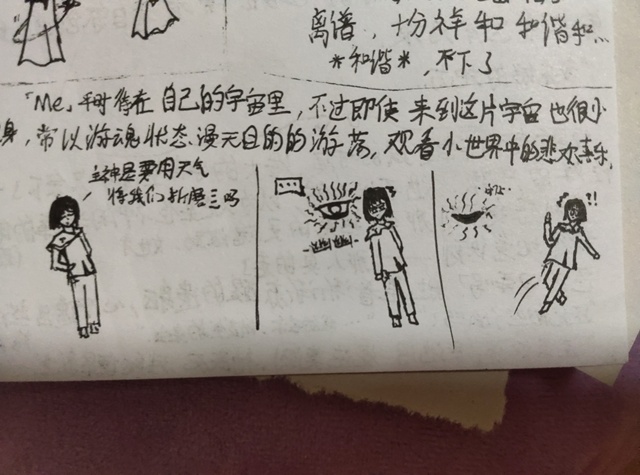 离谱，十分祥和 和谐和...
*和谐*，不下了
「Me」平时待在自己的宇宙里，不过即使来到这片宇宙也很少
身，常以游魂状态漫无目的的游荡，观看小世界中的悲欢喜乐，
主神是要用天气
将我们折磨 吗
...
盯
?!